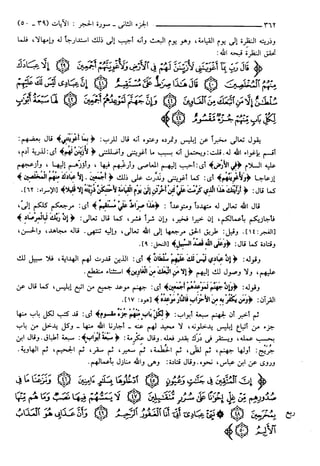 ٣٦٢ الجزء الثاني ـ سورة الحجر : الآيات (٣٩ ـ ٥٠)
وذريته النظرة إلى يوم القيامة، وهو يوم البعث وأنه أجيب إلى ذلك استدراجاً له وإمهالاً، فلما
تحقق النظرة قبحه الله:
﴿ قَالَ رَبِّ بِمَا أَغْوَيْتَنِي لَأُزَيِّنَنَّ لَهُمْ فِي الْأَرْضِ وَلَأُغْوِيَنَّهُمْ أَجْمَعِينَ ﴿٣٩﴾ إِلَّا عِبَادَكَ
مِنْهُمُ الْمُخْلَصِينَ ﴿٤٠﴾ قَالَ هَٰذَا صِرَاطٌ عَلَيَّ مُسْتَقِيمٌ ﴿٤١﴾ إِنَّ عِبَادِي لَيْسَ لَكَ عَلَيْهِمْ
سُلْطَانٌ إِلَّا مَنِ اتَّبَعَكَ مِنَ الْغَاوِينَ ﴿٤٢﴾ وَإِنَّ جَهَنَّمَ لَمَوْعِدُهُمْ أَجْمَعِينَ ﴿٤٣﴾ لَهَا سَبْعَةُ أَبْوَابٍ
لِكُلِّ بَابٍ مِنْهُمْ جُزْءٌ مَقْسُومٌ ﴿٤٤﴾
يقول تعالى مخبراً عن إبليس وتمرده وعتوه أنه قال للرب: ﴿بما أغويتني﴾ قال بعضهم:
أقسم بإغواء الله له. قلت: ويحتمل أنه بسبب ما أغويتني وأضللتني ﴿لأزينن لهم﴾ أي: لذرية آدم،
عليه السلام ﴿في الأرض﴾ أي: أحبب إليهم المعاصي وأرغبهم فيها، وأؤزهم إليها، وأزعجهم
إزعاجاً ﴿ولأغوينهم﴾ أي: كما أغويتني وقدَّرت علي ذلك ﴿أجمعين. إلا عبادك منهم المخلصين﴾
كما قال: ﴿أرأيتك هذا الذي كرمت علي لئن أخرتن إلى يوم القيامة لأحتنكن ذريته إلا قليلاً﴾ [الإسراء: ٦٢].
قال الله تعالى له متهدداً ومتوعداً : ﴿هذا صراط علي مستقيم﴾ أي: مرجعكم كلكم إليَّ،
فأجازيكم بأعمالكم، إن خيراً فخير، وإن شراً فشر، كما قال تعالى: ﴿إن ربك لبالمرصاد﴾
[الفجر: ١٤]. وقيل: طريق الحق مرجعها إلى الله تعالى، وإليه تنتهي. قاله مجاهد، والحسن،
وقتادة كما قال: ﴿وعلى الله قصد السبيل﴾ [النحل: ٩].
وقوله: ﴿إن عبادي ليس لك عليهم سلطان﴾ أي: الذين قدرت لهم الهداية، فلا سبيل لك
عليهم، ولا وصول لك إليهم ﴿إلا من اتبعك من الغاوين﴾ استثناء منقطع.
وقوله: ﴿وإن جهنم لموعدهم أجمعين﴾ أي: جهنم موعد جميع من اتبع إبليس، كما قال عن
القرآن: ﴿ومن يكفر به من الأحزاب فالنار موعده﴾ [هود: ١٧].
ثم أخبر أن لجهنم سبعة أبواب: ﴿لكل باب منهم جزء مقسوم﴾ أي: قد كتب لكل باب منها
جزء من أتباع إبليس يدخلونه، لا محيد لهم عنه - أجارنا الله منها - وكل يدخل من باب
بحسب عمله، ويستقر في دَرَك بقدر فعله. وقال عكرمة: ﴿سبعة أبواب﴾: سبعة أطباق. وقال ابن
جُرَيج: أولها جهنم، ثم لظى، ثم الحطمة، ثم سعير، ثم سقر، ثم الجحيم، ثم الهاوية.
وروي عن ابن عباس، نحوه. وقال قتادة: وهي والله منازل بأعمالهم.
﴿ إِنَّ الْمُتَّقِينَ فِي جَنَّاتٍ وَعُيُونٍ ﴿٤٥﴾ ادْخُلُوهَا بِسَلَامٍ آمِنِينَ ﴿٤٦﴾ وَنَزَعْنَا مَا فِي
صُدُورِهِمْ مِنْ غِلٍّ إِخْوَانًا عَلَىٰ سُرُرٍ مُتَقَابِلِينَ ﴿٤٧﴾ لَا يَمَسُّهُمْ فِيهَا نَصَبٌ وَمَا هُمْ مِنْهَا
بِمُخْرَجِينَ ﴿٤٨﴾ نَبِّئْ عِبَادِي أَنِّي أَنَا الْغَفُورُ الرَّحِيمُ ﴿٤٩﴾ وَأَنَّ عَذَابِي هُوَ الْعَذَابُ
الْأَلِيمُ ﴿٥٠﴾
ربع